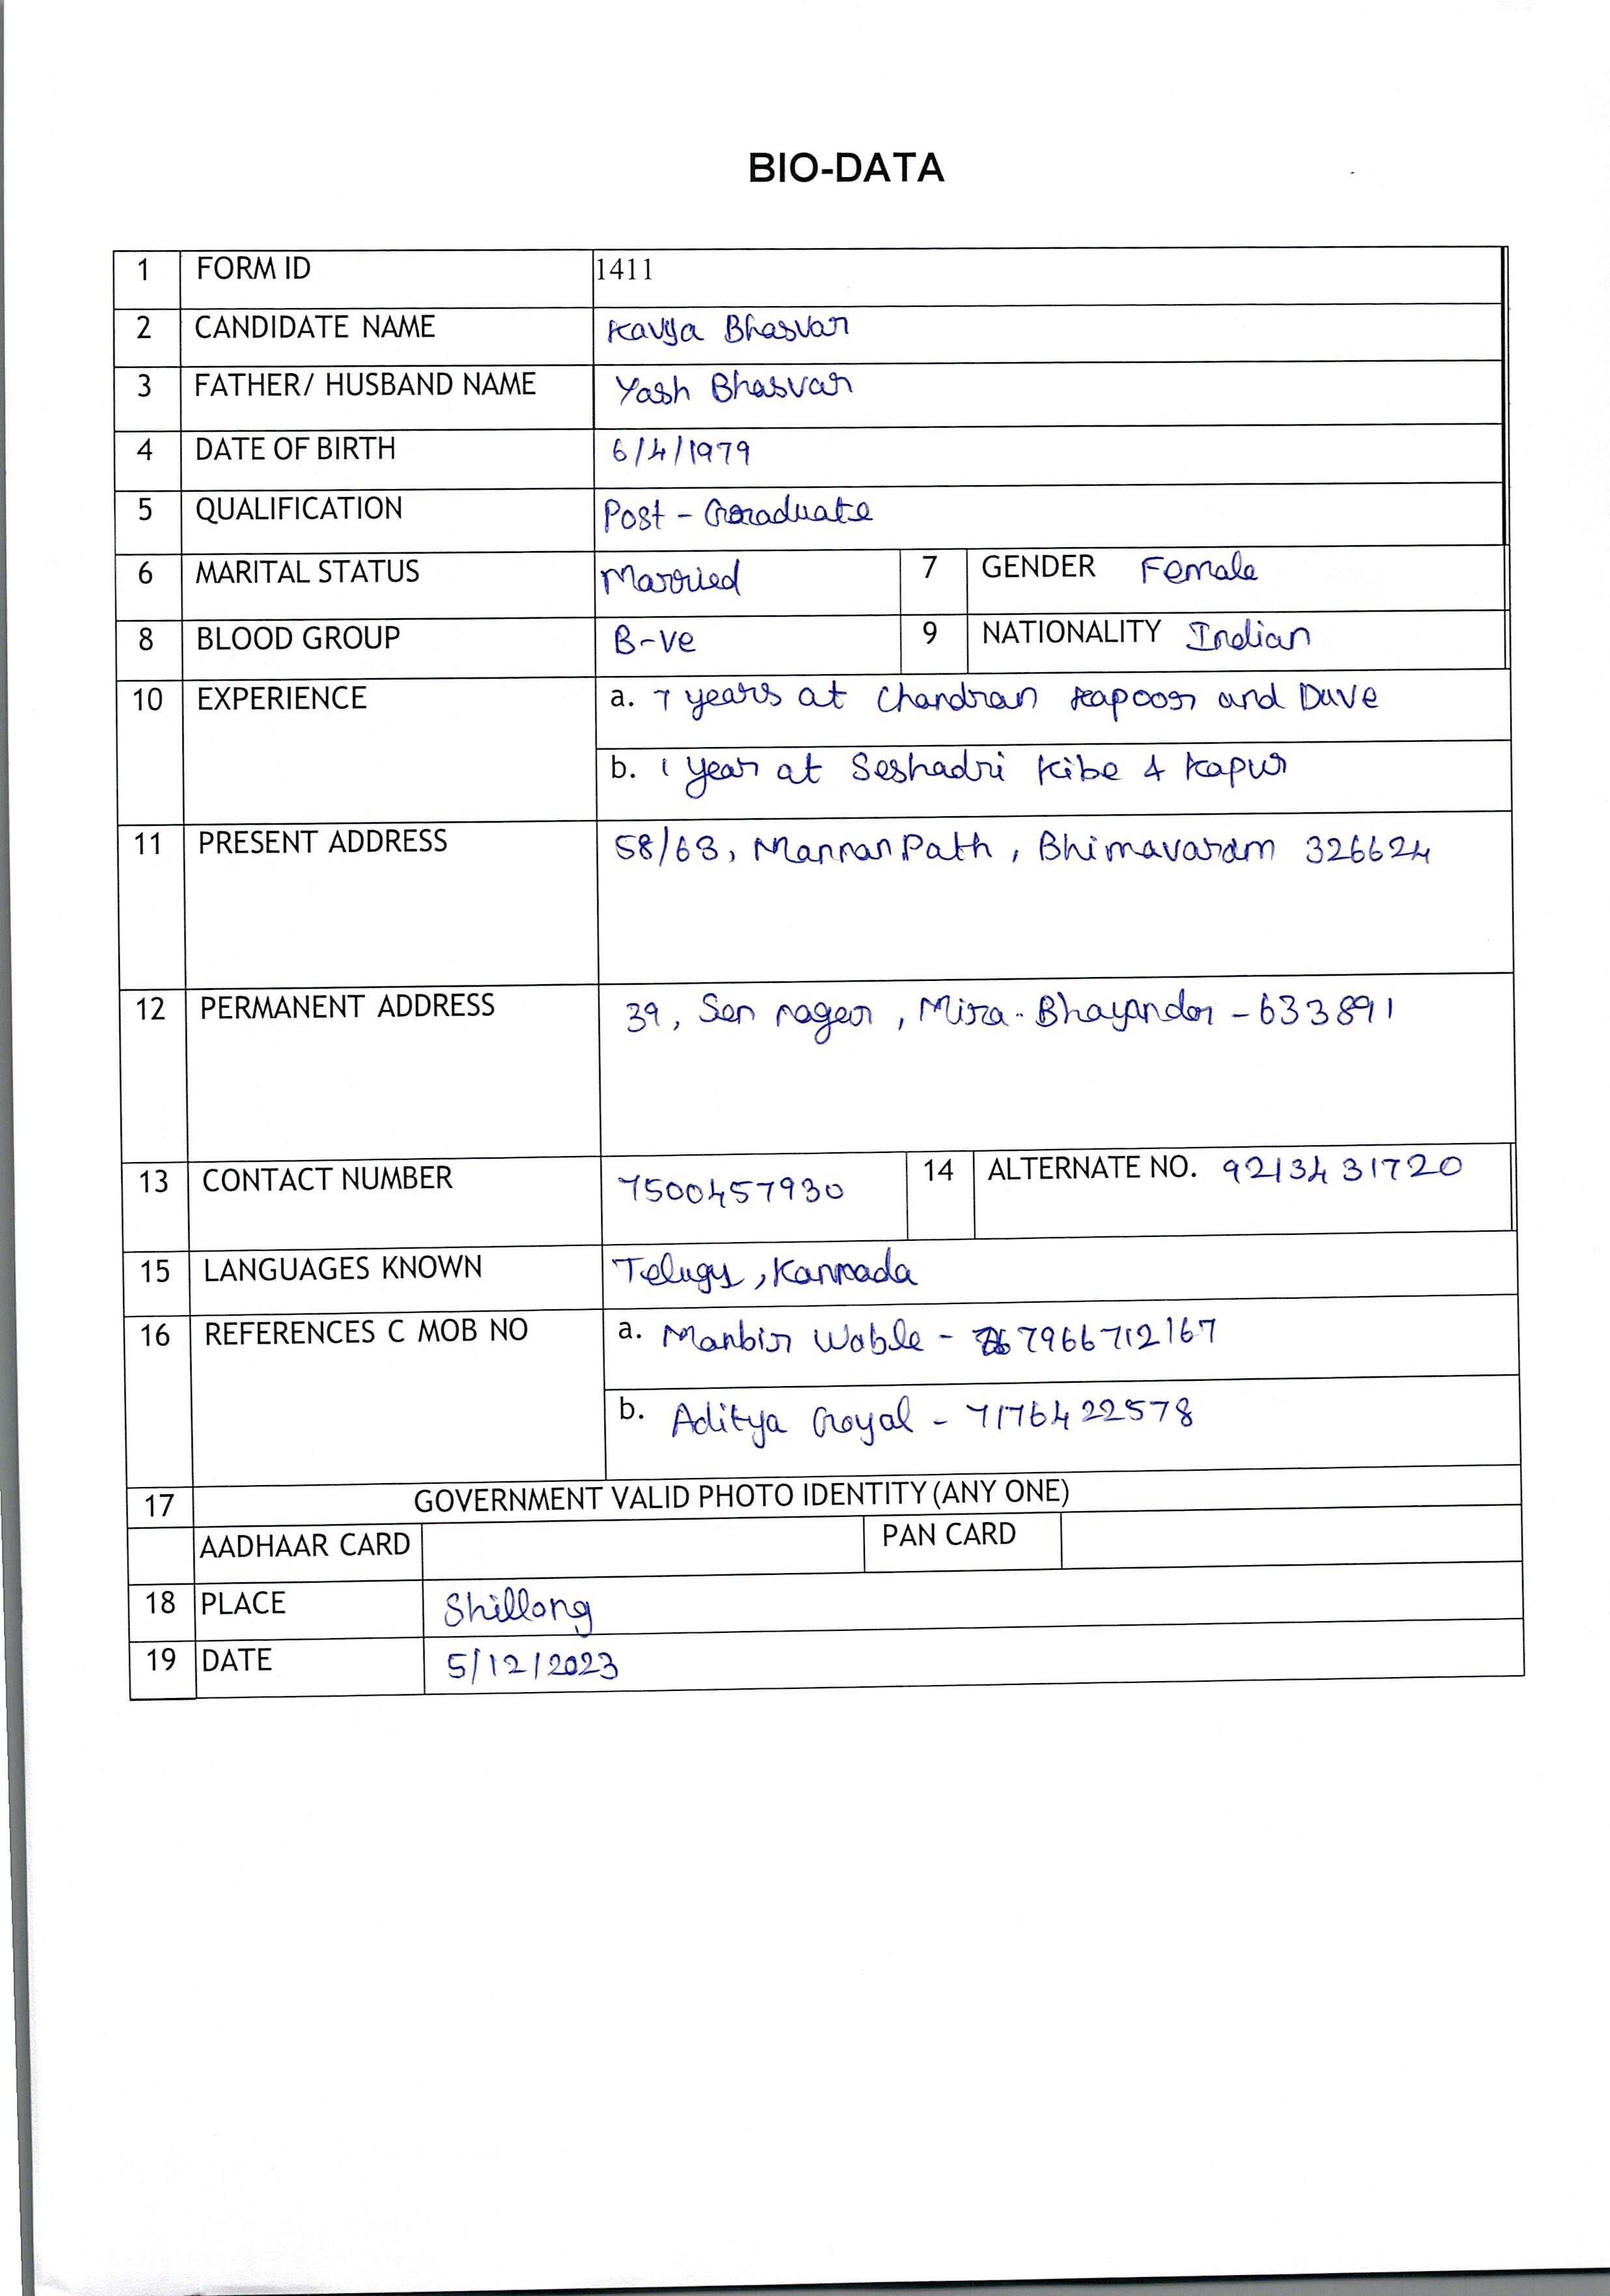 BIO-DATA
1 FORM ID 1411
2 CANDIDATE NAME Kavya Bhasvar
3 FATHER/ HUSBAND NAME Yash Bhasvar
4 DATE OF BIRTH 6/4/1979
5 QUALIFICATION Post - Graduate
6 MARITAL STATUS Married 7 GENDER Female
8 BLOOD GROUP B-ve 9 NATIONALITY Indian
10 EXPERIENCE a. 7 years at Chandran Kapoor and Dave
b. 1 year at Seshadri Kibe & Kapur
11 PRESENT ADDRESS 58/63, Mannan Path, Bhimavaram 326624
12 PERMANENT ADDRESS 39, Sen nagar, Mira-Bhayandar - 633891
13 CONTACT NUMBER 7500457930 14 ALTERNATE NO. 9213431720
15 LANGUAGES KNOWN Telugu, Kannada
16 REFERENCES C MOB NO a. Manbir Wable - 7966712167
b. Aditya Goyal - 7176422578
17 GOVERNMENT VALID PHOTO IDENTITY (ANY ONE)
AADHAAR CARD PAN CARD
18 PLACE Shillong
19 DATE 5/12/2023